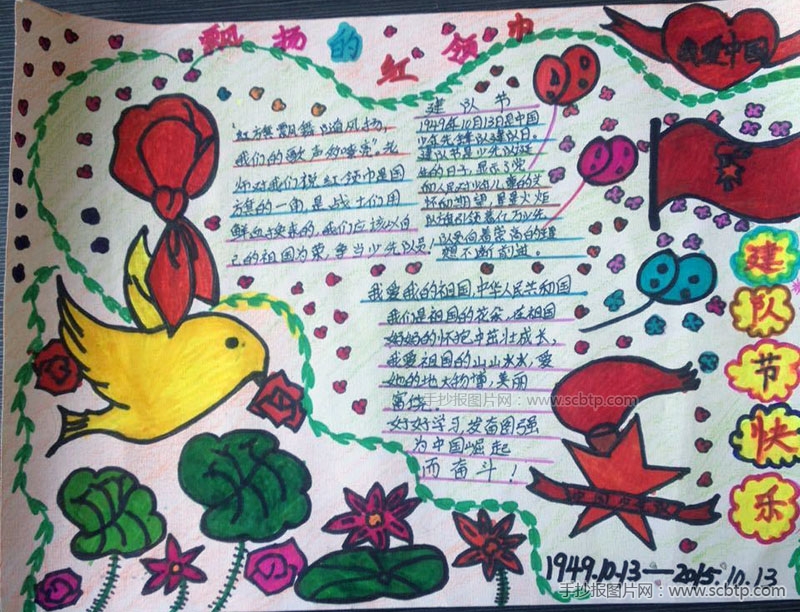 飘扬的红领巾
我爱中国
建队节
1949年10月13日是中国
少年先锋队建队日。
建队节是少先队诞
生的日子,显示了党
和人民对少年儿童的关
怀和期望,星星火炬
队旗引领着亿万少先
队员向着崇高的理
想不断前进。
我们的歌声多嘹亮"老
师对我们说红领巾是国
旗的一角,是战士们用
鲜血换来的,我们应该以自
己的祖国为荣,争当少先队员!
我爱我的祖国,中华人民共和国
我们是祖国的花朵,在祖国
妈妈的怀抱中茁壮成长,
我爱祖国的山山水水,爱
她的地大物博,美丽
富饶。
好好学习,发奋图强
为中国崛起
而奋斗!
建
队
节
快
乐
中国少先队
1949.10.13—2015.10.13
手抄报图片网:www.scbtp.com
手抄报图片网:www.scbtp.com